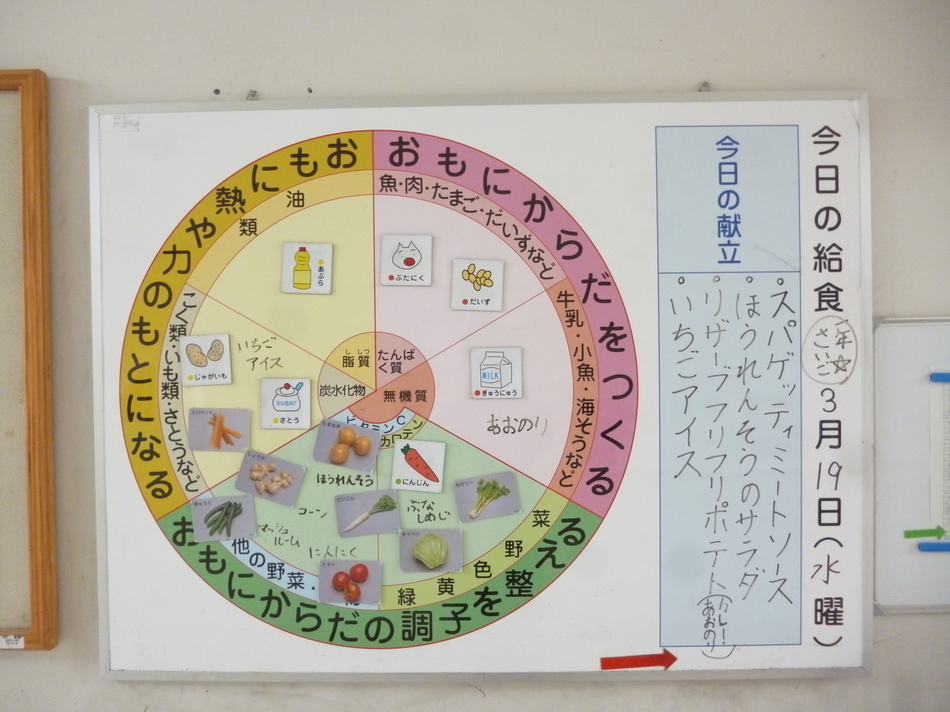 今日の給食 3月19日(水曜)
6年☆
さいご
今日の献立
スパゲッティミートソース
ほうれんそうのサラダ
リザーブフリフリポテト(カレー!あおのり)
いちごアイス
おもにからだをつくる
魚・肉・たまご・だいずなど
牛乳・小魚・海そうなど
おもにからだの調子を整える
菜
野
色
黄
緑
他の野菜・
おもに熱や力のもとになる
油
類
こく類・いも類・さとうなど
たんぱく質
無機質
カロテン
ビタミンC
炭水化物
脂質
し しつ
ぶたにく
だいず
MILK
ぎゅうにゅう
あおのり
あぶら
いちご
アイス
じゃがいも
sugar
さとう
スパゲッティ
たまねぎ
ほうれんそう
にんじん
セロリー
しょうが
だいこん
ぶな
しめじ
コーン
きゅうり
マッシュ
ルーム
にんにく
キャベツ
トマト